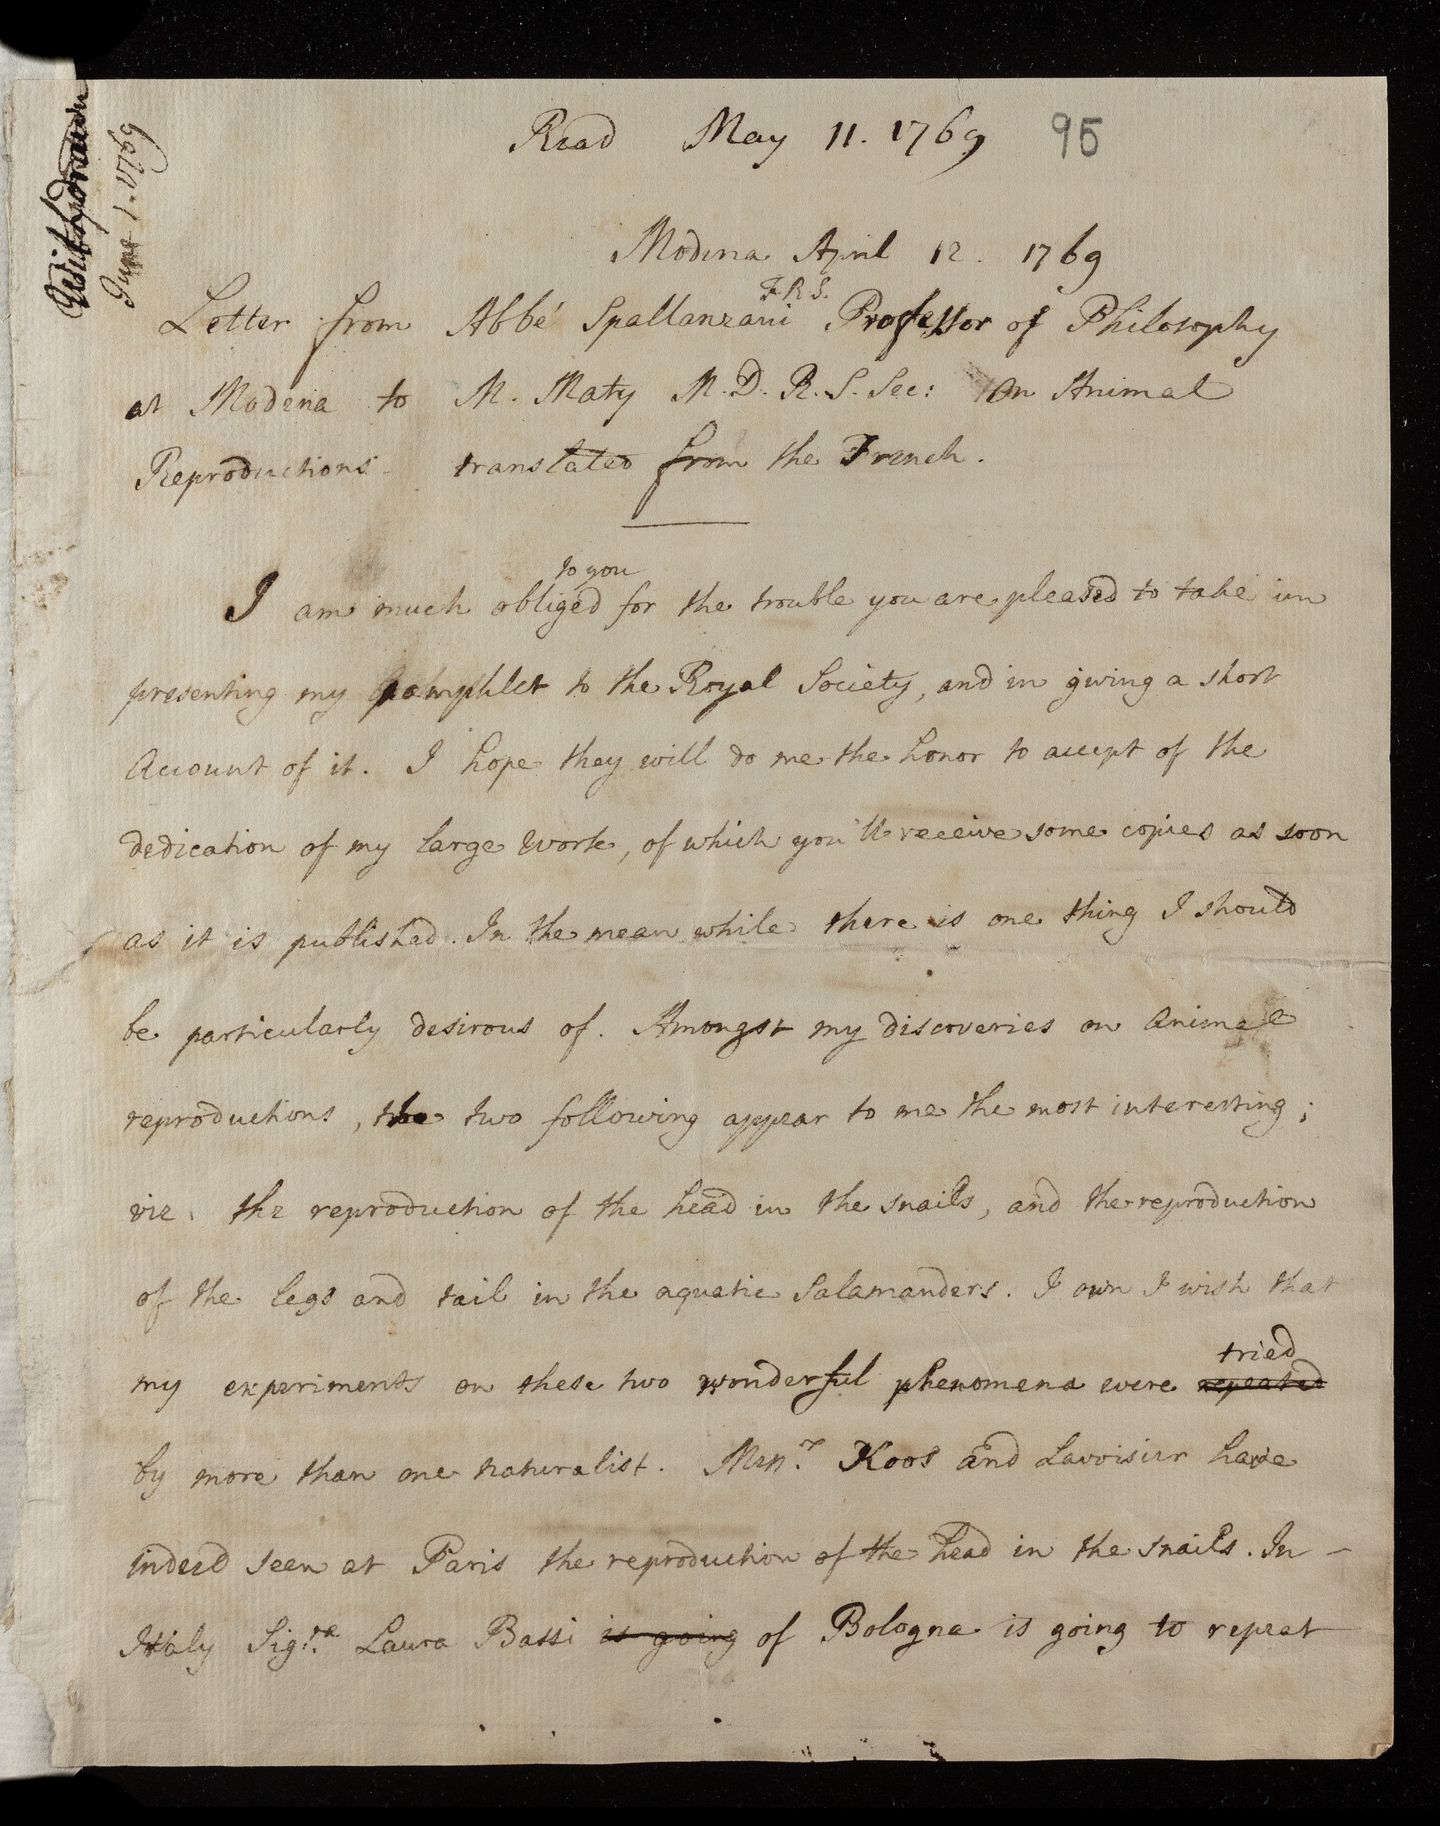 June 1. 1769
Read May 11. 1769 95
Modena April 12. 1769
F.R.S.
Letter from Abbé Spallanzani Professor of Philosophy
at Modena to M. Maty M.D. R.S. Sec: on Animal
Reproductions translated from the French.
to you
I am much obliged for the trouble you are pleased to take in
presenting my pamphlet to the Royal Society, and in giving a short
Account of it. I hope they will do me the honor to accept of the
dedication of my large work, of which you'll receive some copies as soon
as it is published. In the mean while there is one thing I should
be particularly desirous of. Amongst my discoveries on animal
reproductions, the two following appear to me the most interesting;
viz. the reproduction of the head in the snails, and the reproduction
of the legs and tail in the aquatic Salamanders. I own I wish that
tried
my experiments on these two wonderful phenomena were repeated
by more than one naturalist. Messrs. Roos and Lavoisier have
indeed seen at Paris the reproduction of the head in the snails. In
Italy Sigra. Laura Bassi is going of Bologna is going to repeat